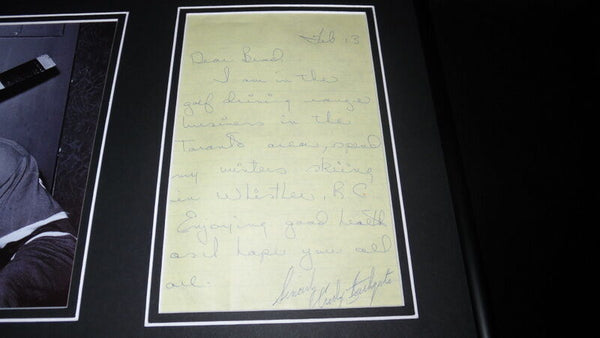 Feb 13
Dear Brad
I am in the
golf driving range
business in the
Toronto area, spend
my winters skiing
in Whistler, B.C
Enjoying good health
as I hope you all
are.
Sincerely